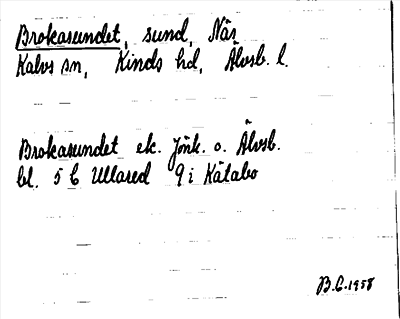 Brokasundet, sund, När
Kalvs sn, Kinds hd, Älvsb. l.
Brokasundet ek. Jönk. o. Älvsb.
bl. 5 C Ullared 9 i Kätabo
B.C. 1958